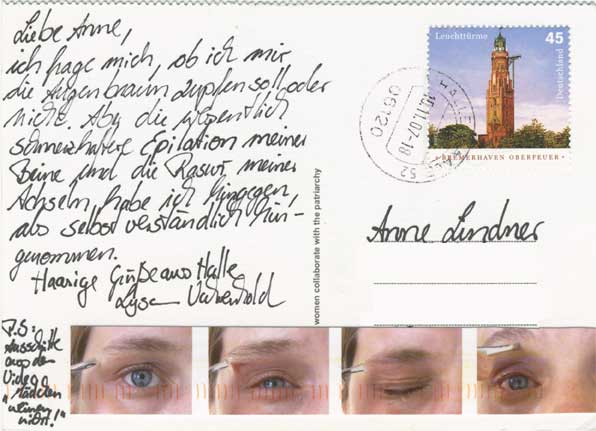 Liebe Anne,
ich frage mich, ob ich mir
die Augenbraun zupfen soll oder
nicht. Aber die wöchentlich
schmerzhafte Epilation meiner
Beine und die Rasur meiner
Achseln, habe ich hingegen,
als selbstverständlich hin-
genommen.
Haarige Grüße aus Halle
P.S:
Ausschnitte
aus dem
Video
"Mädchen
weinen
nicht!"
women collaborate with the patriarchy
Leuchttürme 45
Deutschland
BREMERHAVEN OBERFEUER
HALLE
15.11.07-18
06120
52
Anne Lindner